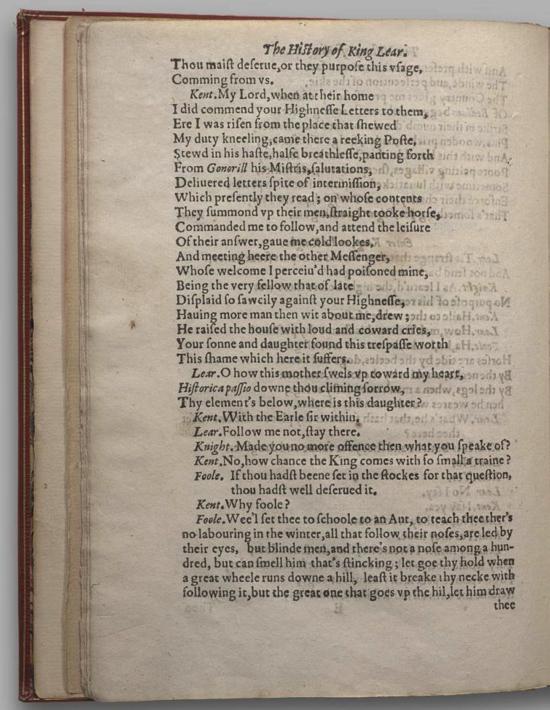 The History of King Lear.
Thou maist deserue,or they purpose this vsage,
Comming from vs.
Kent.My Lord,when at their home
I did commend your Highnesse Letters to them,
Ere I was risen from the place that shewed
My duty kneeling,came there a reeking Poste,
Stewd in his haste,halfe breathlesse,panting forth
From Gonorill his Mistris,salutations,
Deliuered letters spite of intermission,
Which presently they read; on whose contents
They summond vp their men,straight tooke horse,
Commanded me to follow,and attend the leisure
Of their answer,gaue me cold lookes,
And meeting heere the other Messenger,
Whose welcome I perceiu'd had poisoned mine,
Being the very fellow that of late
Displaid so sawcily against your Highnesse,
Hauing more man then wit about me,drew;
He raised the house with loud and coward cries,
Your sonne and daughter found this trespasse worth
This shame which here it suffers.
Lear.O how this mother swels vp toward my heart,
Historica passio downe thou climing sorrow,
Thy element's below,where is this daughter?
Kent.With the Earle sir within.
Lear.Follow me not,stay there.
Knight.Made you no more offence then what you speake of?
Kent.No,how chance the King comes with so small a traine?
Foole. If thou hadst beene set in the stockes for that question,
thou hadst well deserued it.
Kent.Why foole?
Foole.Wee'l set thee to schoole to an Ant, to teach thee ther's
no labouring in the winter,all that follow their noses,are led by
their eyes, but blinde men,and there's not a nose among a hun-
dred, but can smell him that's stincking; let goe thy hold when
a great wheele runs downe a hill, least it breake thy necke with
following it,but the great one that goes vp the hil,let him draw
thee